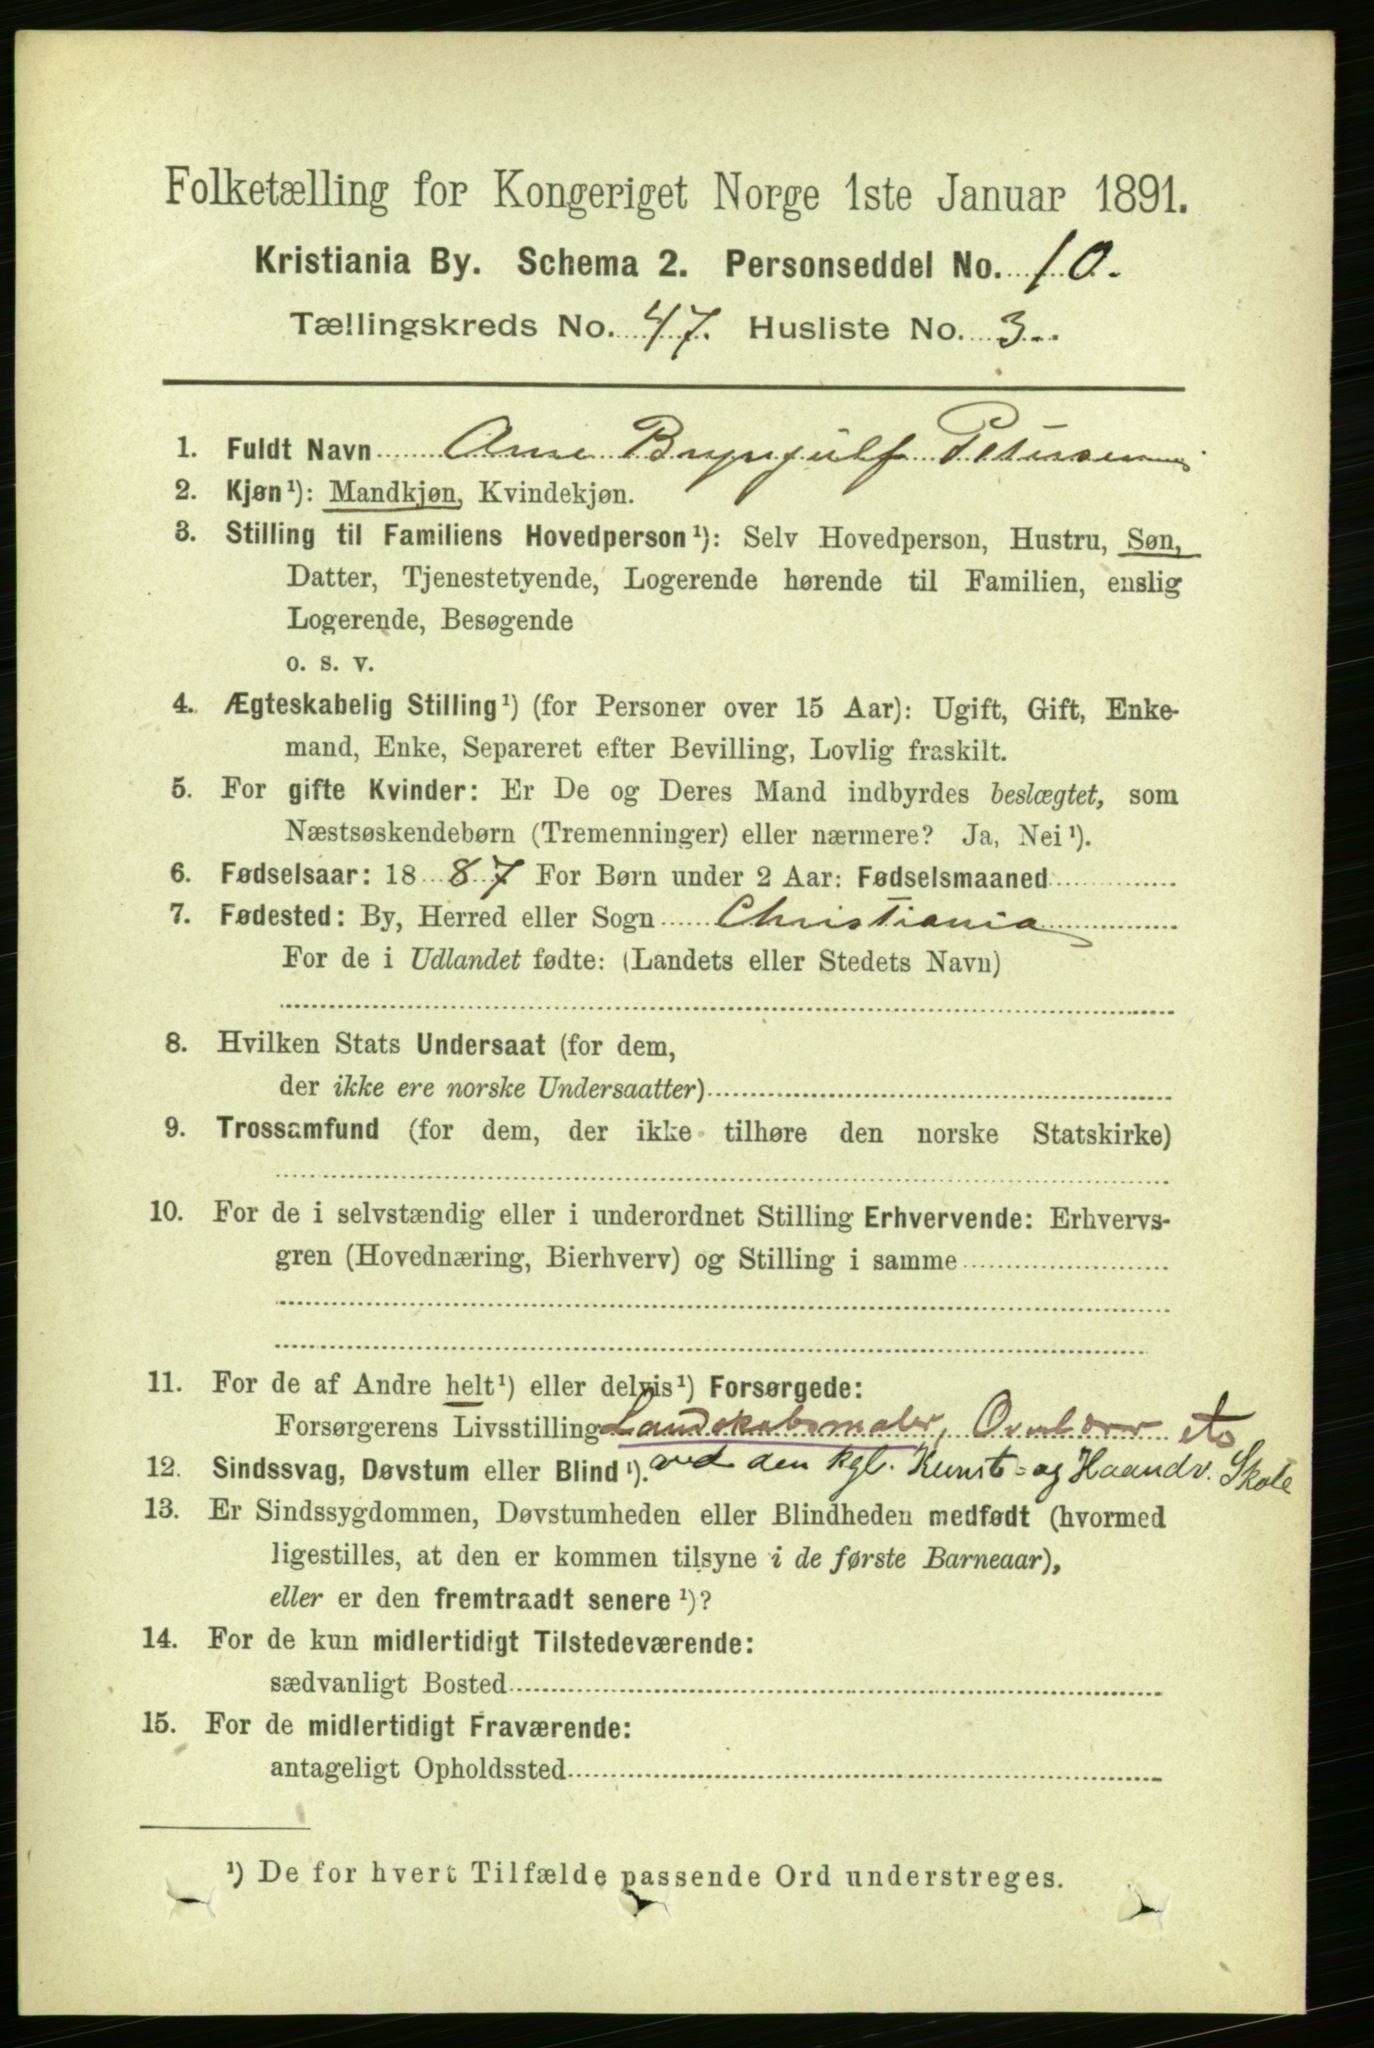 Folketælling for Kongeriget Norge 1ste Januar 1891.
Kristiania By. Schema 2. Personseddel No. 10.
Tællingskreds No. 47. Husliste No. 3.
1. Fuldt Navn Arne Brynjulf Petersen
2. Kjøn¹): Mandkjøn, Kvindekjøn.
3. Stilling til Familiens Hovedperson¹): Selv Hovedperson, Hustru, Søn,
Datter, Tjenestetyende, Logerende hørende til Familien, enslig
Logerende, Besøgende
o. s. v.
4. Ægteskabelig Stilling¹) (for Personer over 15 Aar): Ugift, Gift, Enke-
mand, Enke, Separeret efter Bevilling, Lovlig fraskilt.
5. For gifte Kvinder: Er De og Deres Mand indbyrdes beslægtet, som
Næstsøskendebørn (Tremenninger) eller nærmere? Ja, Nei¹).
6. Fødselsaar: 1887 For Børn under 2 Aar: Fødselsmaaned
7. Fødested: By, Herred eller Sogn Christiania
For de i Udlandet fødte: (Landets eller Stedets Navn)
8. Hvilken Stats Undersaat (for dem,
der ikke ere norske Undersaatter)
9. Trossamfund (for dem, der ikke tilhøre den norske Statskirke)
10. For de i selvstændig eller i underordnet Stilling Erhvervende: Erhvervs-
gren (Hovednæring, Bierhverv) og Stilling i samme
11. For de af Andre helt¹) eller delvis¹) Forsørgede:
Forsørgerens Livsstilling Landskabsmaler, Overlærer
12. Sindssvag, Døvstum eller Blind¹). ved den kgl. Kunst- og Haandv. Skole
13. Er Sindssygdommen, Døvstumheden eller Blindheden medfødt (hvormed
ligestilles, at den er kommen tilsyne i de første Barneaar),
eller er den fremtraadt senere¹)?
14. For de kun midlertidigt Tilstedeværende:
sædvanligt Bosted
15. For de midlertidigt Fraværende:
antageligt Opholdssted
¹) De for hvert Tilfælde passende Ord understreges.